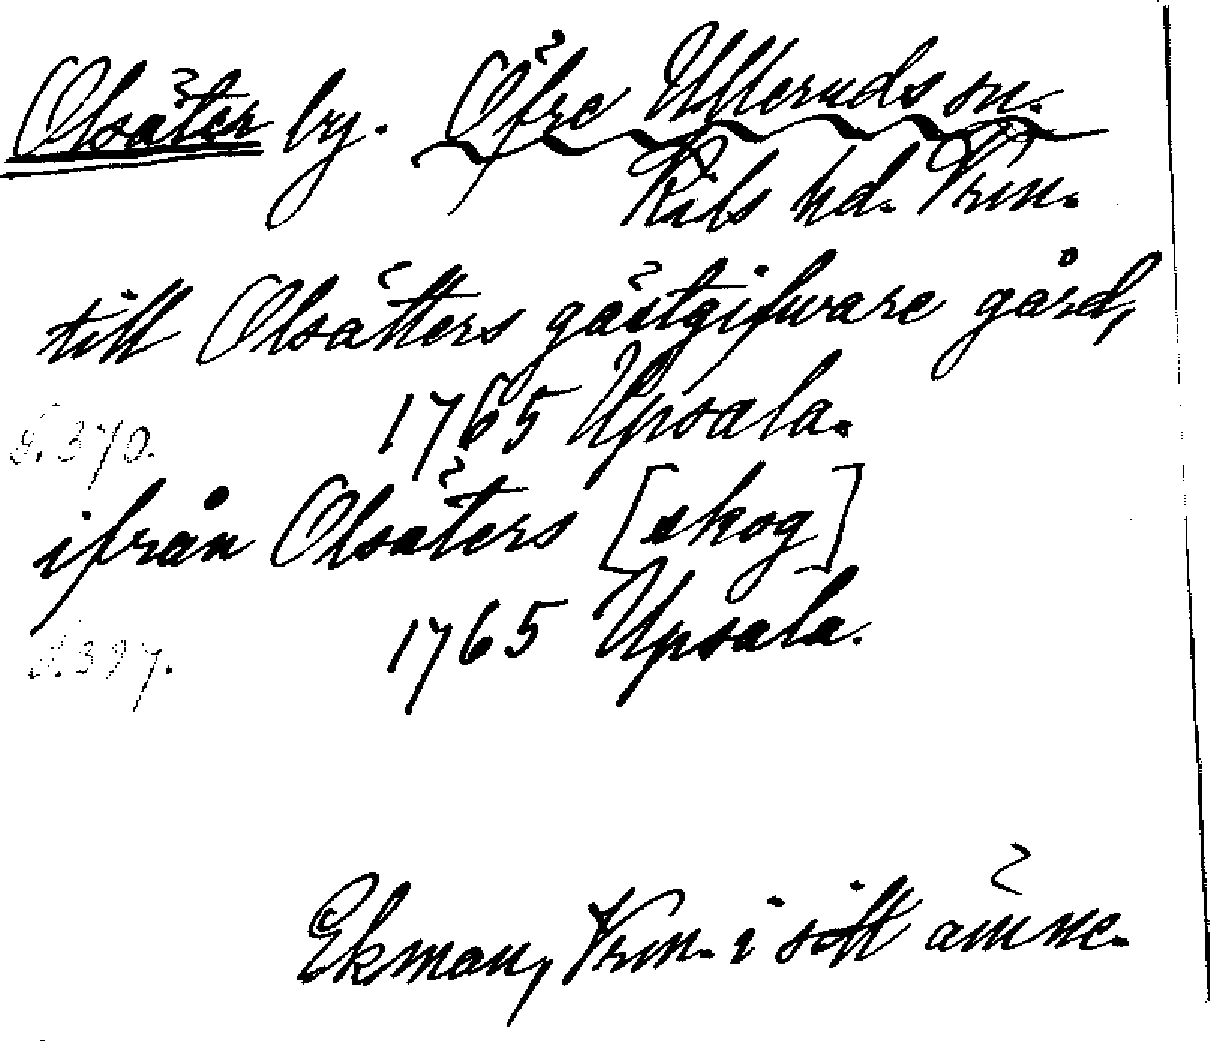 Olsäter by. Öfre Ulleruds sn.
Kils hd. Vrm.
till Olsätters gästgifware gård,
S. 370. 1765 Upsala.
ifrån Olsäters [skog]
S. 397. 1765 Upsala.
Ekman, Vrm. i sitt ämne.